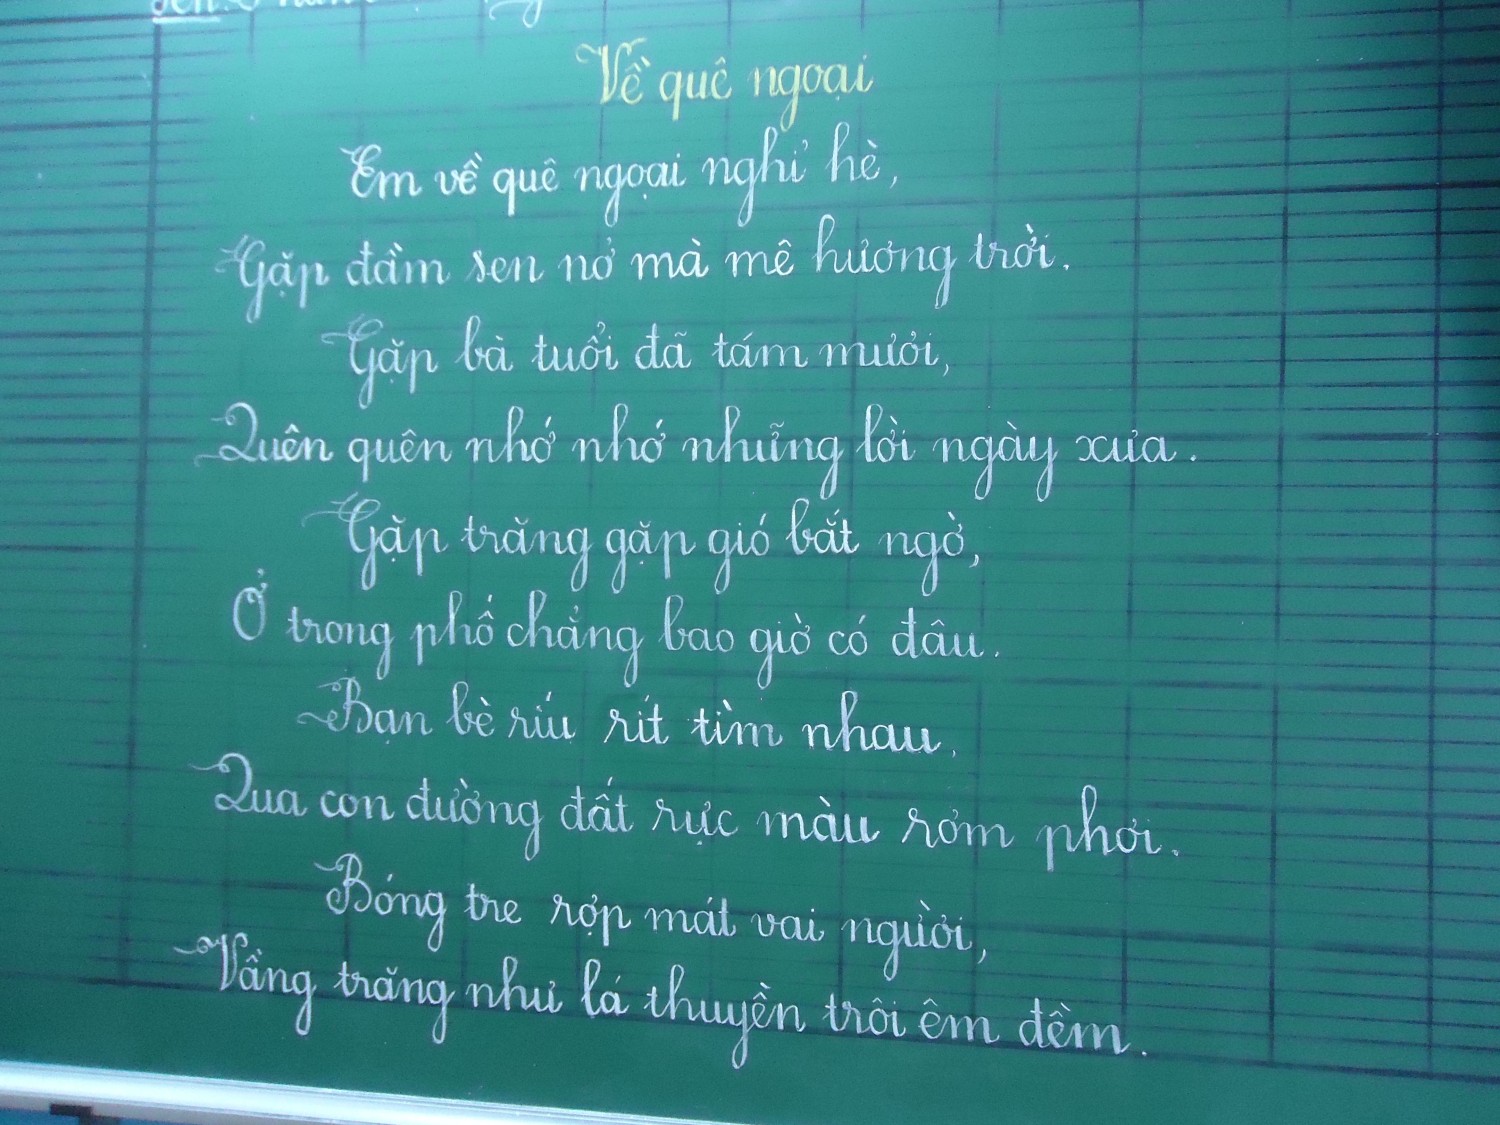 Về quê ngoại
Em về quê ngoại nghỉ hè,
Gặp đầm sen nở mà mê hương trời.
Gặp bà tuổi đã tám mươi,
Quên quên nhớ nhớ những lời ngày xưa.
Gặp trăng gặp gió bất ngờ,
Ở trong phố chẳng bao giờ có đâu.
Bạn bè ríu rít tìm nhau,
Qua con đường đất rực màu rơm phơi.
Bóng tre rợp mát vai người,
Vầng trăng như lá thuyền trôi êm đềm.